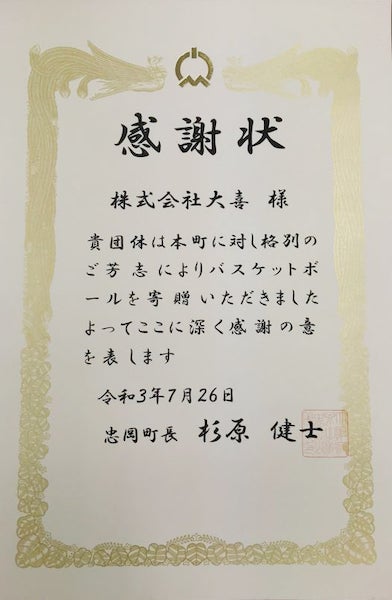 感謝状
株式会社大喜 様
貴団体は本町に対し格別の
ご芳志によりバスケットボ
ールを寄贈いただきました
よってここに深く感謝の意
を表します
令和3年7月26日
忠岡町長 杉原 健士